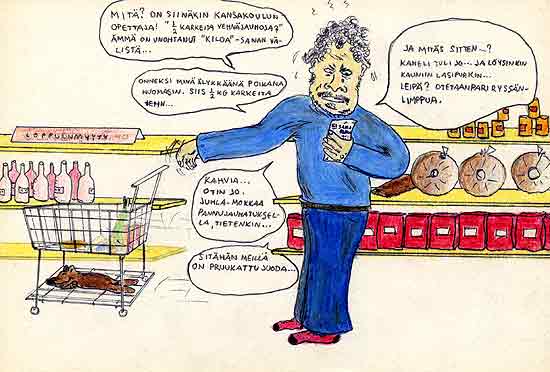 MITÄ? ON SIINÄKIN KANSAKOULUN
OPETTAJA! "1/2 KARKEITA VEHNÄJAUHOJA?"
ÄMMÄ ON UNOHTANUT "KILOA"-SANAN VÄ-
LISTÄ...
ONNEKSI MINÄ ÄLYKKÄÄNÄ POIKANA
HUOMASIN. SIIS 1/2 KG KARKEITA
HEHN...
JA MITÄS SITTEN...?
KANELI TULI JO... JA LÖYSINKIN
KAUNIIN LASIPURKIN...
LEIPÄ? OTETAAN PARI RYSSÄN-
LIMPPUA.
LOPPUUNMYYTY
KAHVIA...
OTIN JO.
JUHLA-MOKKAA
PANNUJAUHATUKSEL-
LA, TIETENKIN...
SITÄHÄN MEILLÄ
ON PRUUKATTU JUODA...